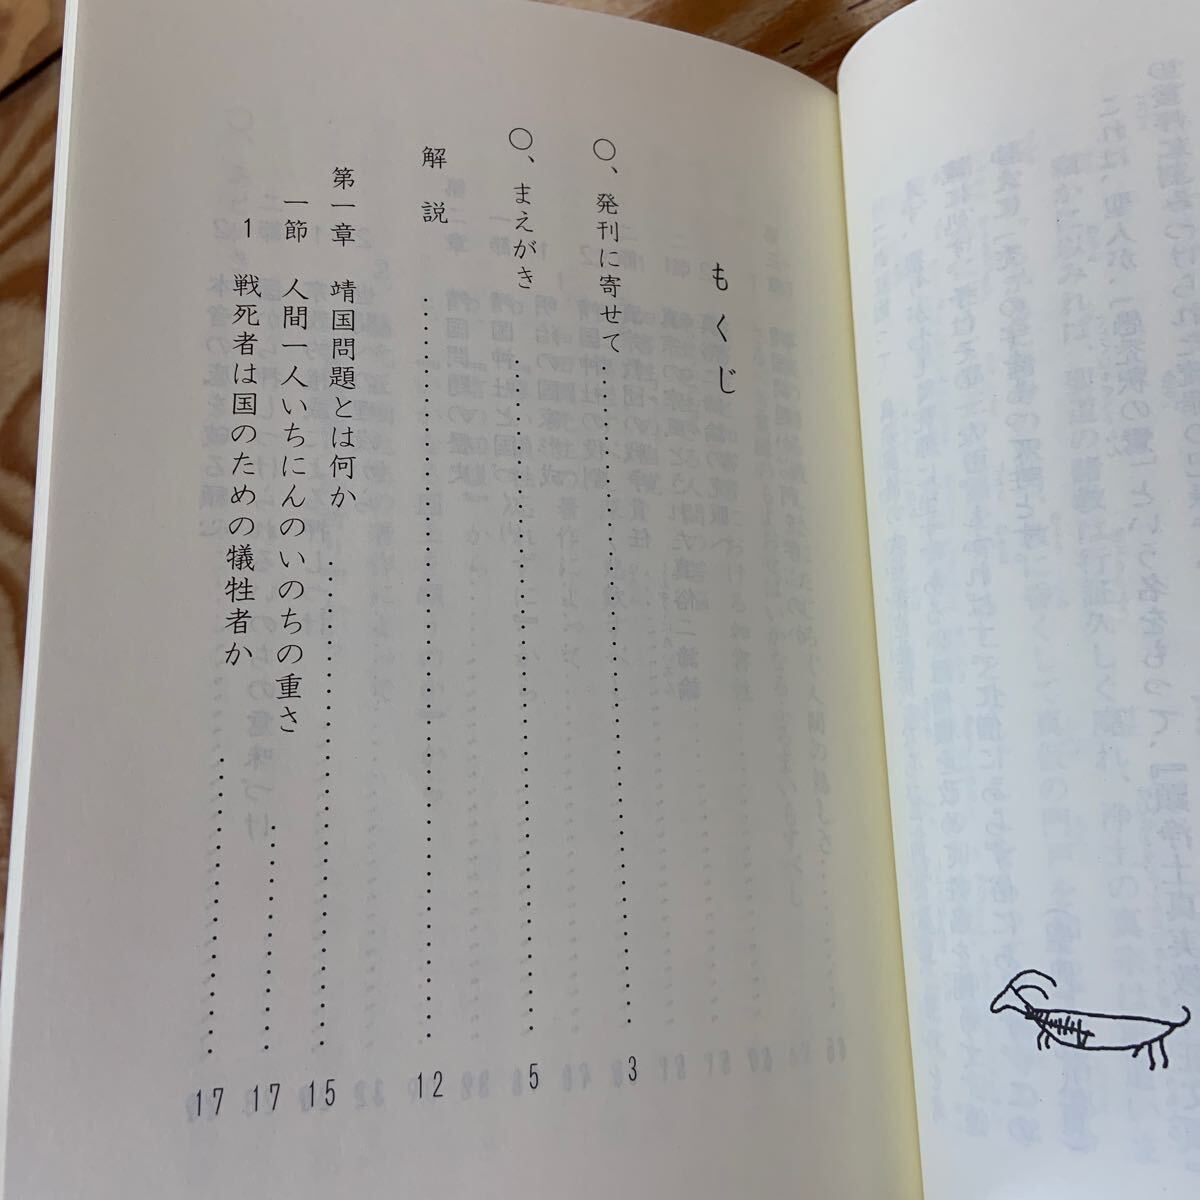 もくじ
〇、発刊に寄せて……………………3
〇、まえがき……………………5
解説……………………12
第一章 靖国問題とは何か……………………15
一節 人間一人いちにんのいのちの重さ……………………17
1 戦死者は国のための犠牲者か……………………17